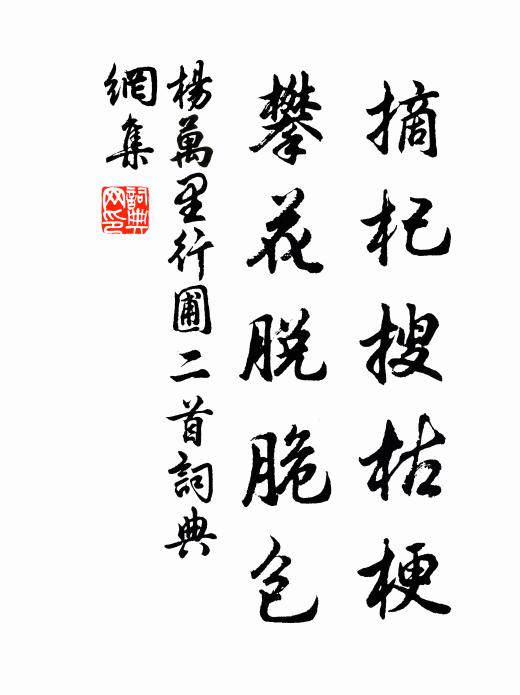 摘杞搜枯梗
攀花脫脆包
楊萬里行圃二首詞典
網集
詞典网印